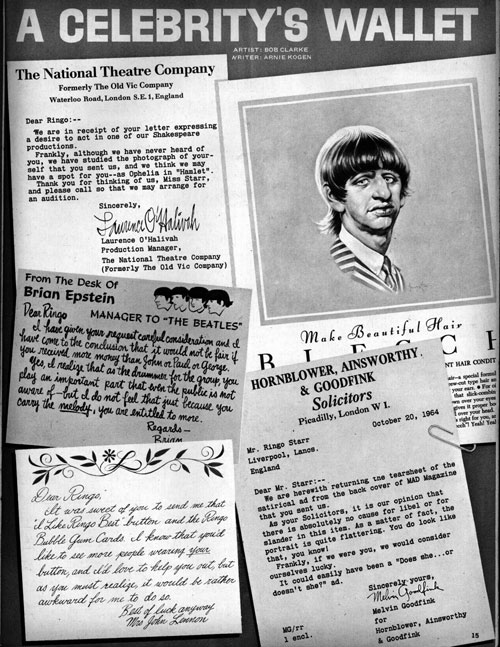 A CELEBRITY'S WALLET
ARTIST: BOB CLARKE
WRITER: ARNIE KOGEN
The National Theatre Company
Formerly The Old Vic Company
Waterloo Road, London S.E.1, England
Dear Ringo:--
We are in receipt of your letter expressing
a desire to act in one of our Shakespeare
productions.
Frankly, although we have never heard of
you, we have studied the photograph of your-
self that you sent us, and we think we may
have a spot for you--as Ophelia in "Hamlet".
Thank you for thinking of us, Miss Starr,
and please call so that we may arrange for
an audition.
Sincerely,
Laurence O'Halivah
Laurence O'Halivah
Production Manager,
The National Theatre Company
(Formerly The Old Vic Company)
From The Desk Of
Brian Epstein
MANAGER TO "THE BEATLES"
Dear Ringo
I have given your request careful consideration and I
have come to the conclusion that it would not be fair if
you received more money than John or Paul or George.
Yes, I realize that as the drummer for the group, you
play an important part that even the public is not
aware of—but I do not feel that just because you
carry the melody, you are entitled to more.
Regards—
Brian
Dear Ringo,
It was sweet of you to send me that
"I Like Ringo Best" button and the Ringo
Bubble Gum Cards. I know that you'd
like to see more people wearing your
button, and I'd love to help you out, but
as you must realize, it would be rather
awkward for me to do so.
Best of luck anyway
Mrs John Lennon
Make Beautiful Hair
B L E C
NT HAIR CONDIT
air—a special formul
ew-cut type hair
your ears.
that slick-combin
own over your eyes
gives it proper bo
l over your head.
s right for you,
Yeah! Yeah!
HORNBLOWER, AINSWORTHY
& GOODFINK
Solicitors
Picadilly, London W I.
October 20, 1964
Mr. Ringo Starr
Liverpool, Lancs.
England
Dear Mr. Starr:--
We are herewith returning the tearsheet of the
satirical ad from the back cover of MAD Magazine
that you sent us.
As your Solicitors, it is our opinion that
there is absolutely no cause for libel or for
slander in this item. As a matter of fact, the
portrait is quite flattering. You do look like
that, you know!
Frankly, if we were you, we would consider
ourselves lucky.
It could easily have been a "Does she...or
doesn't she?" ad.
Sincerely yours,
Melvin Goodfink
Melvin Goodfink
for
Hornblower, Ainsworthy
& Goodfink
MG/rr
1 encl.
15